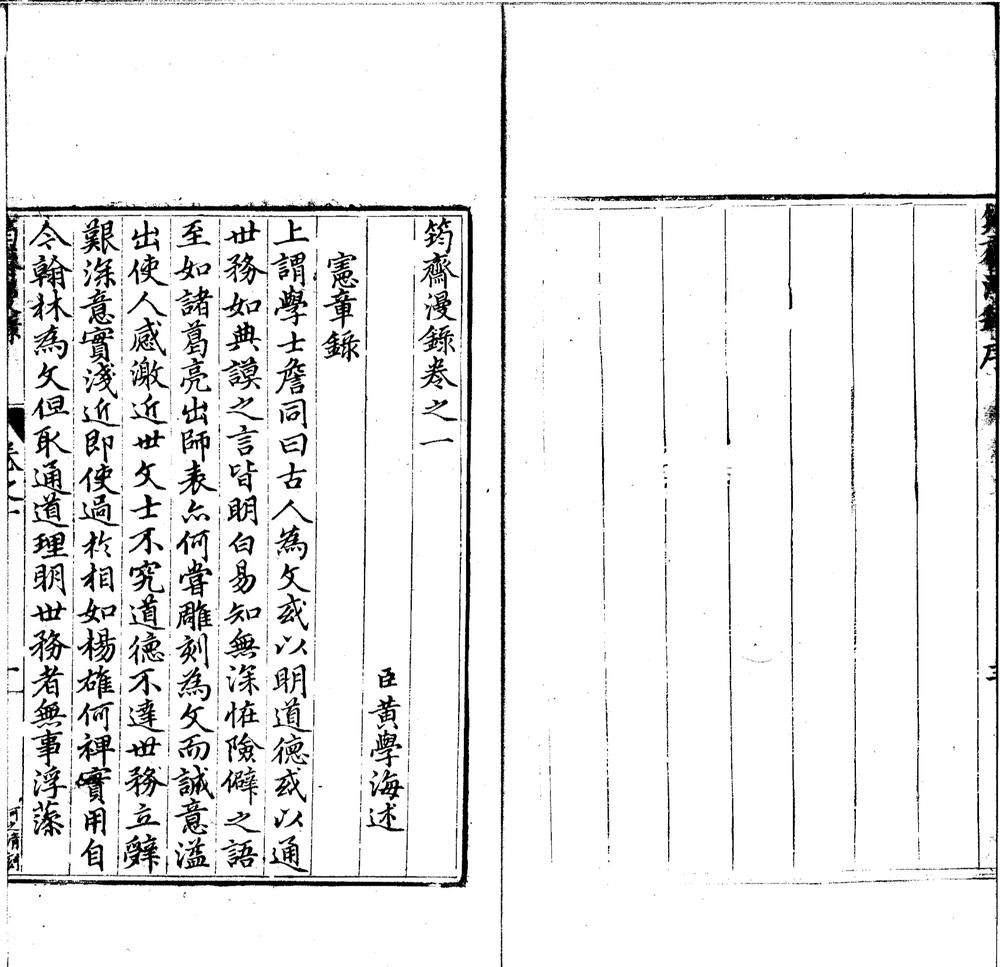 筠齋漫錄序
三
筠齋漫錄卷之一
臣黃學海述
憲章錄
上謂學士詹同曰古人為文或以明道德或以通
世務如典謨之言皆明白易知無深恠險僻之語
至如諸葛亮出師表亦何甞雕刻為文而誠意溢
出使人感激近世文士不究道德不達世務立辭
艱深意實淺近即使過於相如楊雄何裨實用自
今翰林為文但取通道理明世務者無事浮藻
筠齋漫錄
卷之一
一